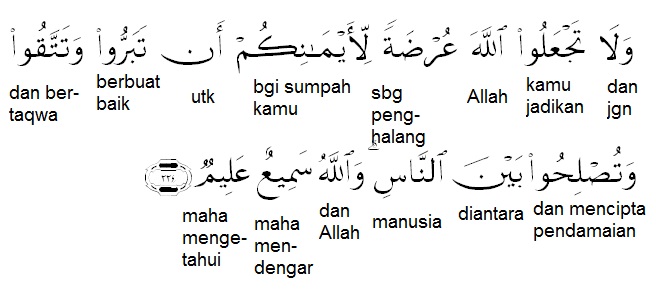 وَلَا تَجْعَلُوا۟ ٱللَّهَ عُرْضَةً لِّأَيْمَـٰنِكُمْ أَن تَبَرُّوا۟ وَتَتَّقُوا۟
dan
jgn
kamu
jadikan
Allah
sbg
peng-
halang
bgi sumpah
kamu
utk
berbuat
baik
dan ber-
taqwa
وَتُصْلِحُوا۟ بَيْنَ ٱلنَّاسِ ۗ وَٱللَّهُ سَمِيعٌ عَلِيمٌ ٢٢٤
dan mencipta
pendamaian
diantara
manusia
dan
Allah
maha
men-
dengar
maha
menge-
tahui